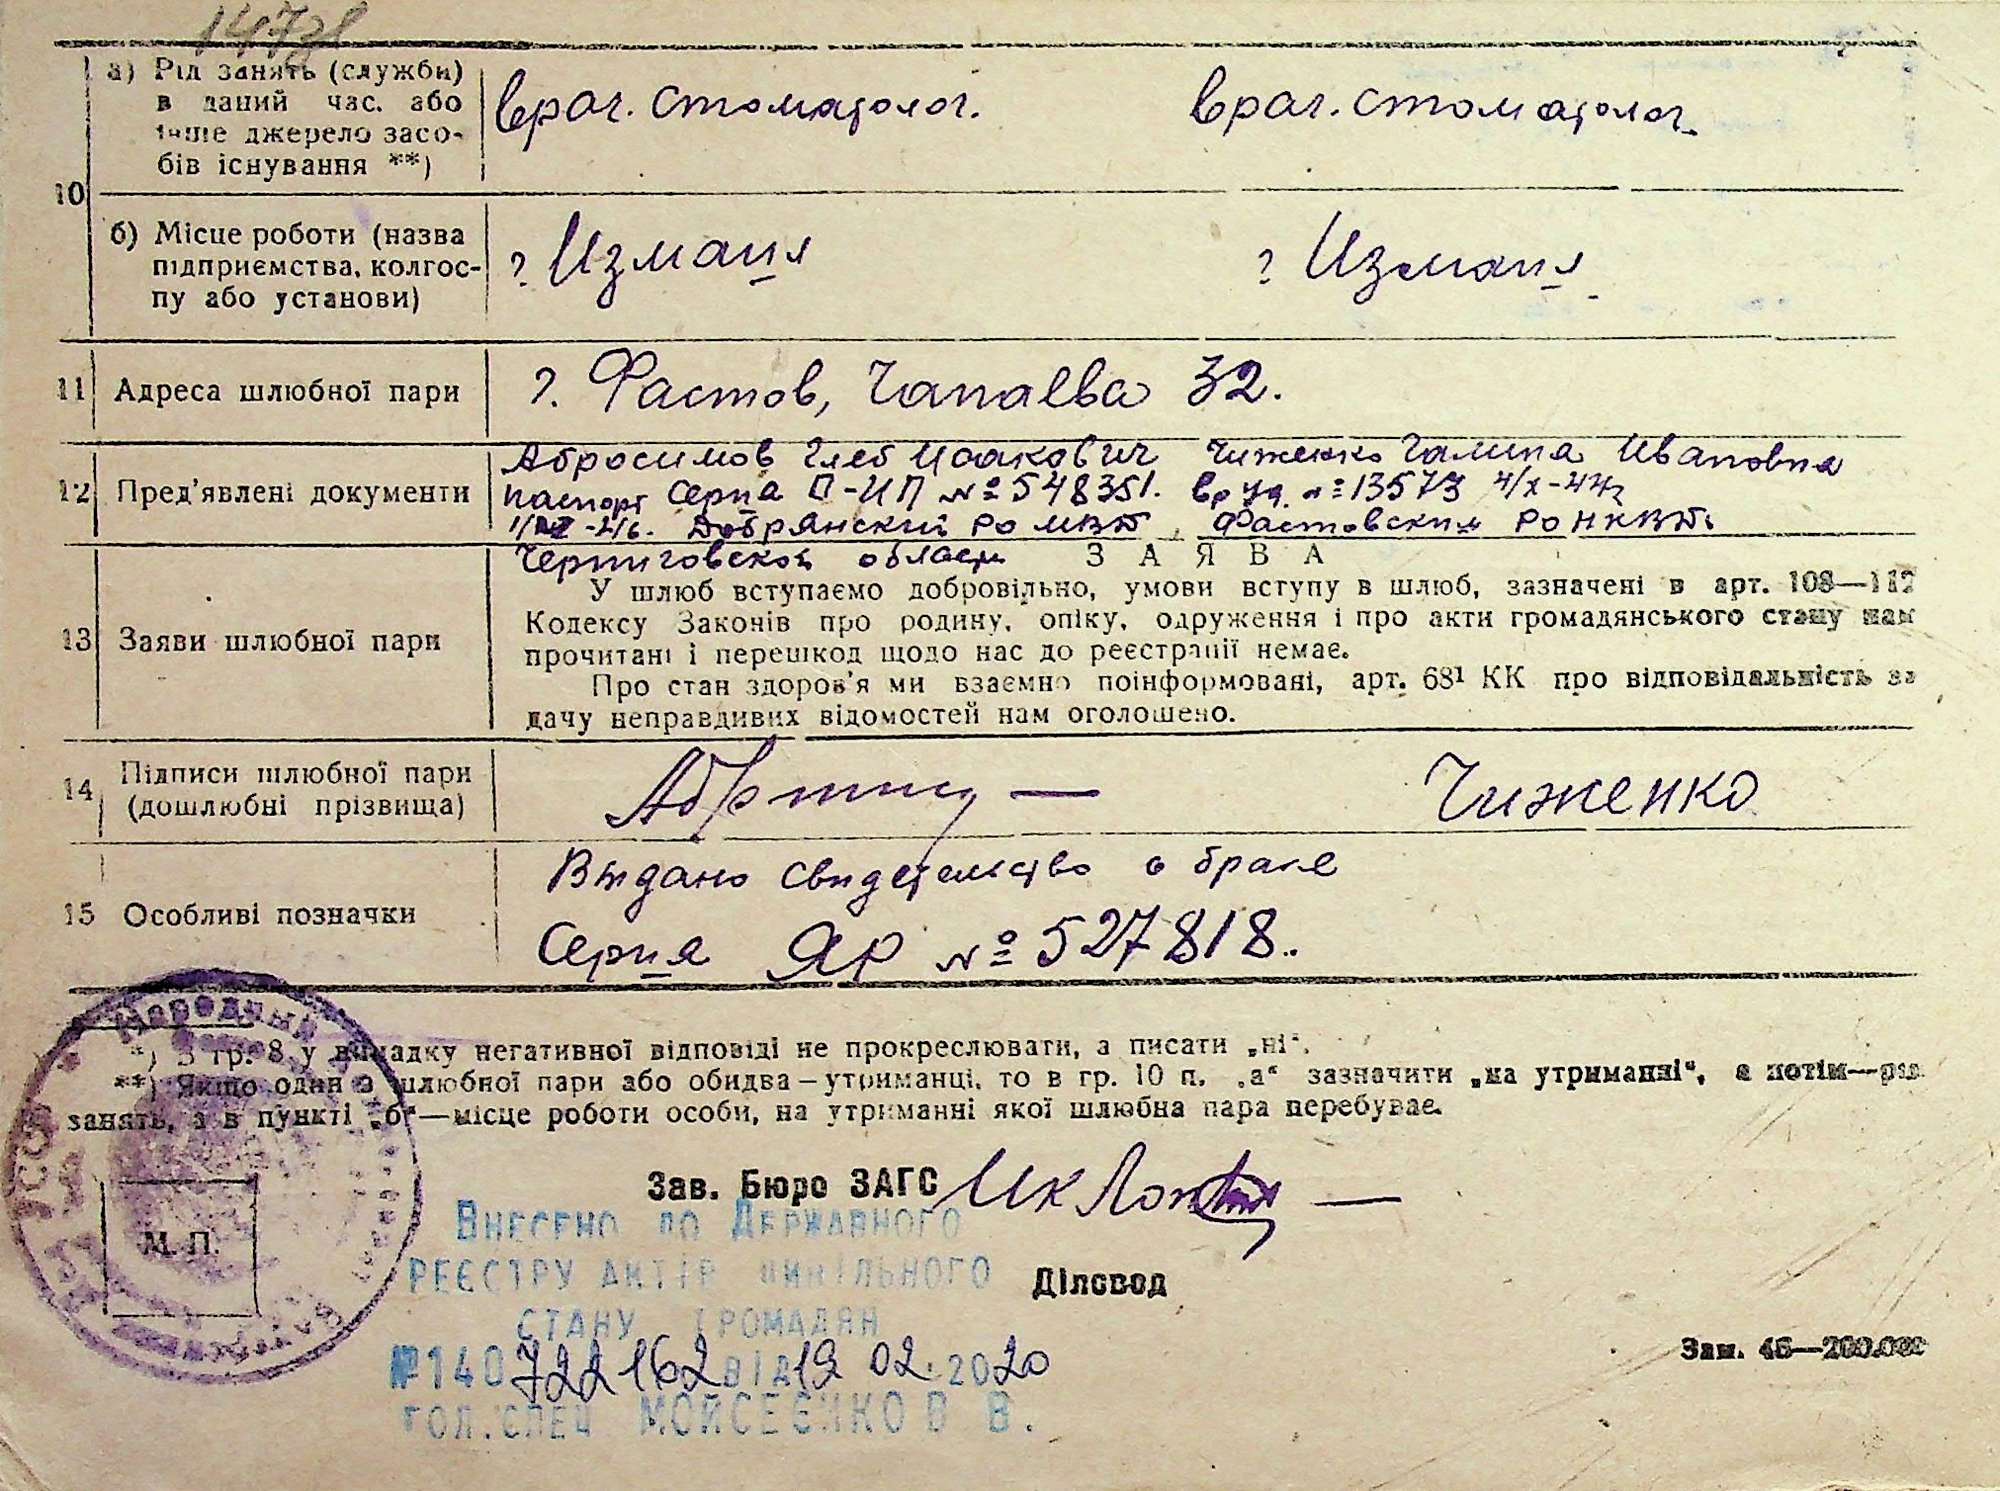 а) Рід занять (служби)
в даний час. або
інше джерело засо-
бів існування **)
врач. стоматолог.
врач. стоматолог.
10
б) Місце роботи (назва
підприємства, колгос-
пу або установи)
г Измаил
г Измаил
11 Адреса шлюбної пари
г. Фастов, Чапаева 32.
12 Пред'явлені документи
Абросимов Глеб Исакович
паспорт Серия П-ИП № 548351.
Добрянский РО МВД
Черниговской области
Чиженко Галина Ивановна
вр уд. № 13573 4/X-44г
Фастовским РО НКВД.
ЗАЯВА
13 Заяви шлюбної пари
У шлюб вступаємо добровільно, умови вступу в шлюб, зазначені в арт. 108—112
Кодексу Законів про родину, опіку, одруження і про акти громадянського стану нам
прочитані і перешкод щодо нас до реєстрації немає.
Про стан здоров'я ми взаємно поінформовані, арт. 68¹ КК про відповідальність за
дачу неправдивих відомостей нам оголошено.
14 Підписи шлюбної пари
(дошлюбні прізвища)
Чиженко
15 Особливі позначки
Выдано свидетельство о браке
Серия ЯР № 527818.
*) В гр. 8 у випадку негативної відповіді не прокреслювати, а писати „ні“.
**) Якщо один з шлюбної пари або обидва — утриманці, то в гр. 10 п. „а“ зазначити „на утриманні“, а потім—рід
занять, а в пункті „б“—місце роботи особи, на утриманні якої шлюбна пара перебуває.
Зав. Бюро ЗАГС
М. П.
Внесено до Державного
реєстру актів цивільного
стану громадян
№140722162 від 19 02. 2020
гол.спец Мойсеєнко В В.
Діловод
Зам. 46—200.000